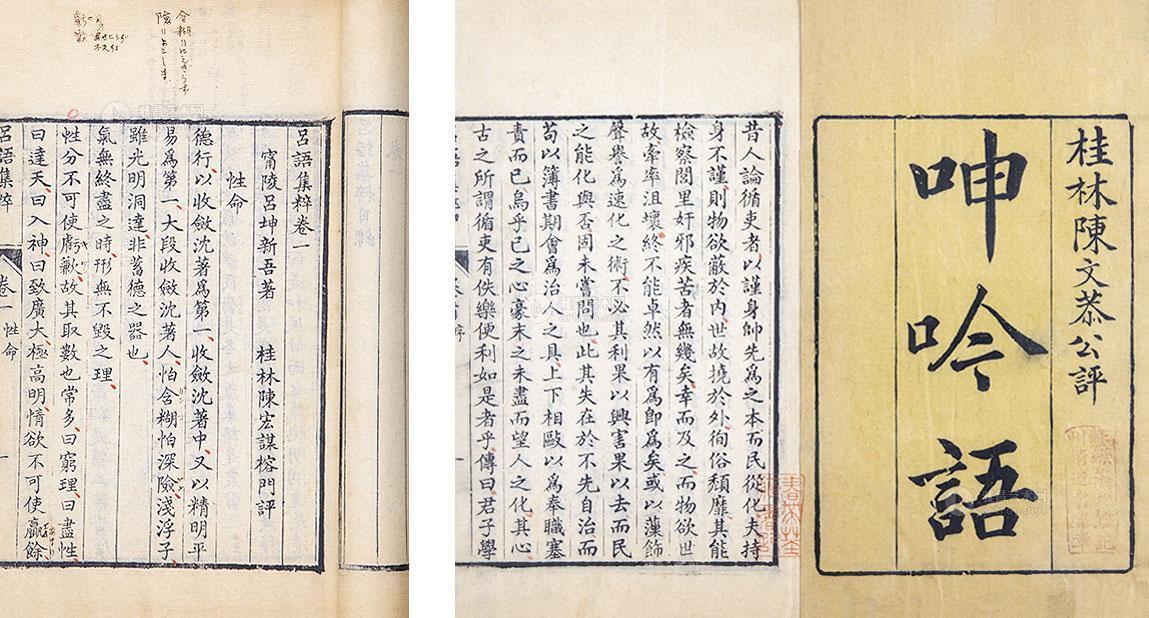 桂林陳文恭公評
呻吟語
昔人論循吏者以謹身帥先爲之本而民從化夫持
身不謹則物欲蔽於內世故撓於外徇俗頹靡其能
檢察閭里奸邪疾苦者無幾矣幸而及之而物欲世
故牽率沮壞終不能卓然以有爲卽爲矣或以藻飾
聲譽爲速化之術不必其利果以興害果以去而民
之能化與否固未嘗問也此其失在於不先自治而
苟以簿書期會爲治人之具上下相歐以爲奉職塞
責而已烏乎已之心豪末之未盡而望人之化其心
古之所謂循吏有佚樂便利如是者乎傳曰君子學
呂語集粹卷一
甯陵呂坤新吾著 桂林陳宏謀榕門評
性命
德行以收斂沈著爲第一收斂沈著中又以精明平
易爲第一大段收斂沈著人怕含糊怕深險淺浮子
雖光明洞達非蓄德之器也
氣無終盡之時形無不毀之理
性分不可使虧歉故其取數也常多曰窮理曰盡性
曰達天曰入神曰致廣大極高明情欲不可使贏餘
呂語集粹 卷一 性命 一